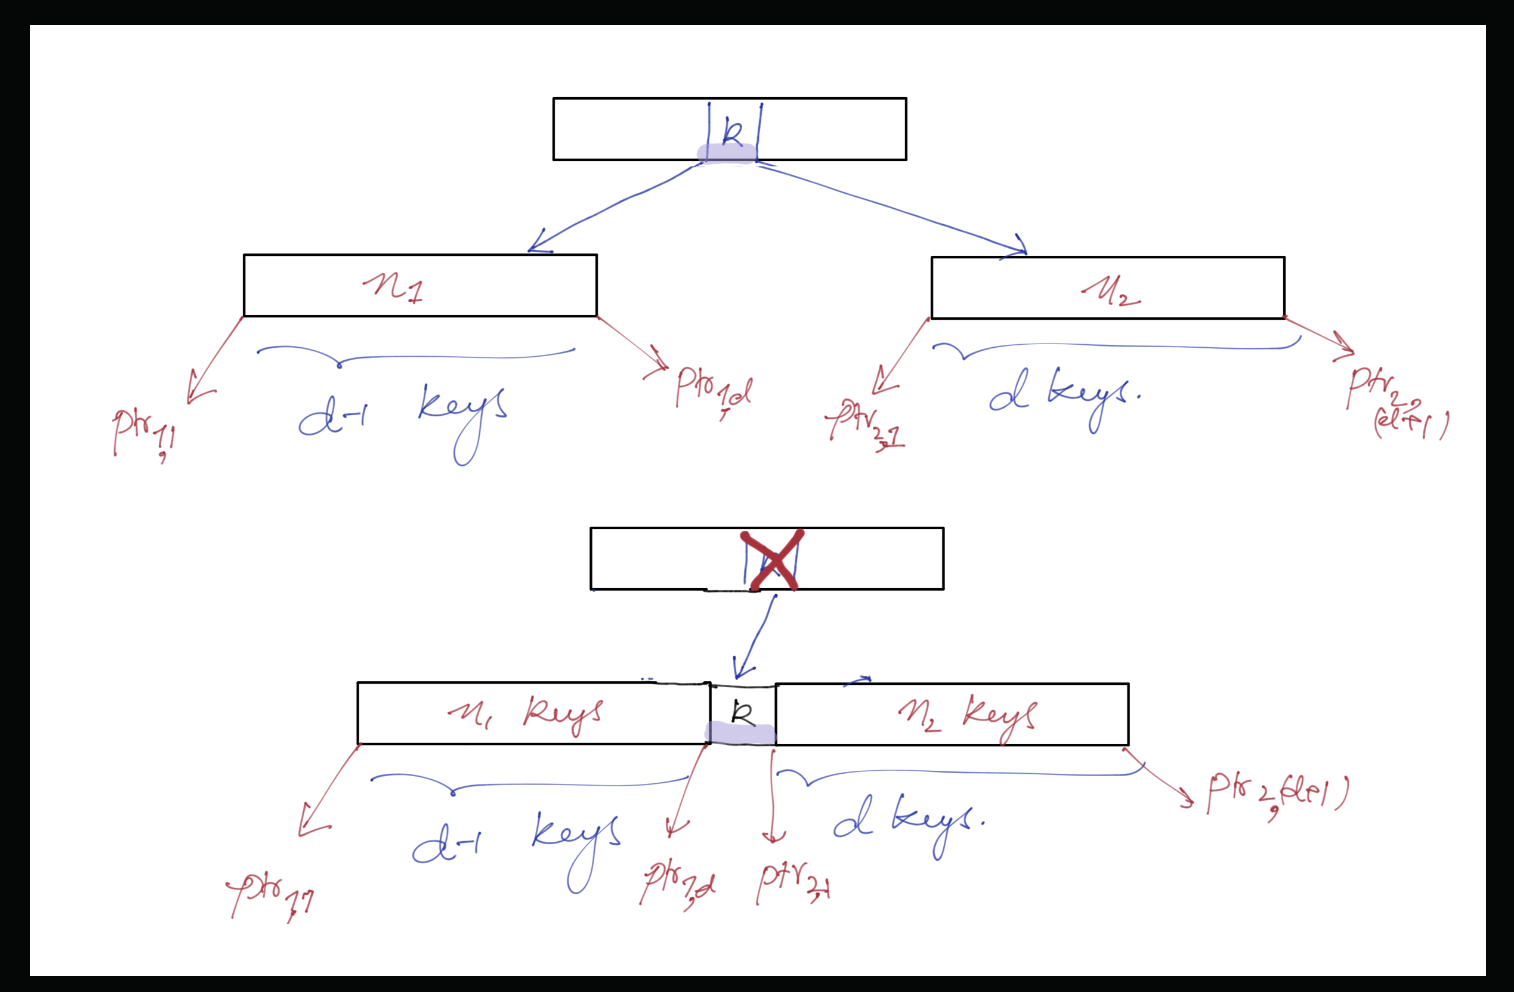 k
n1
n2
ptr1,1
d-1 keys
ptr1,d
ptr2,1
d keys.
ptr2,
(d+1)
k
n1 keys
k
n2 keys
ptr1,1
d-1 keys
ptr1,d
ptr2,1
d keys.
ptr2,(d+1)